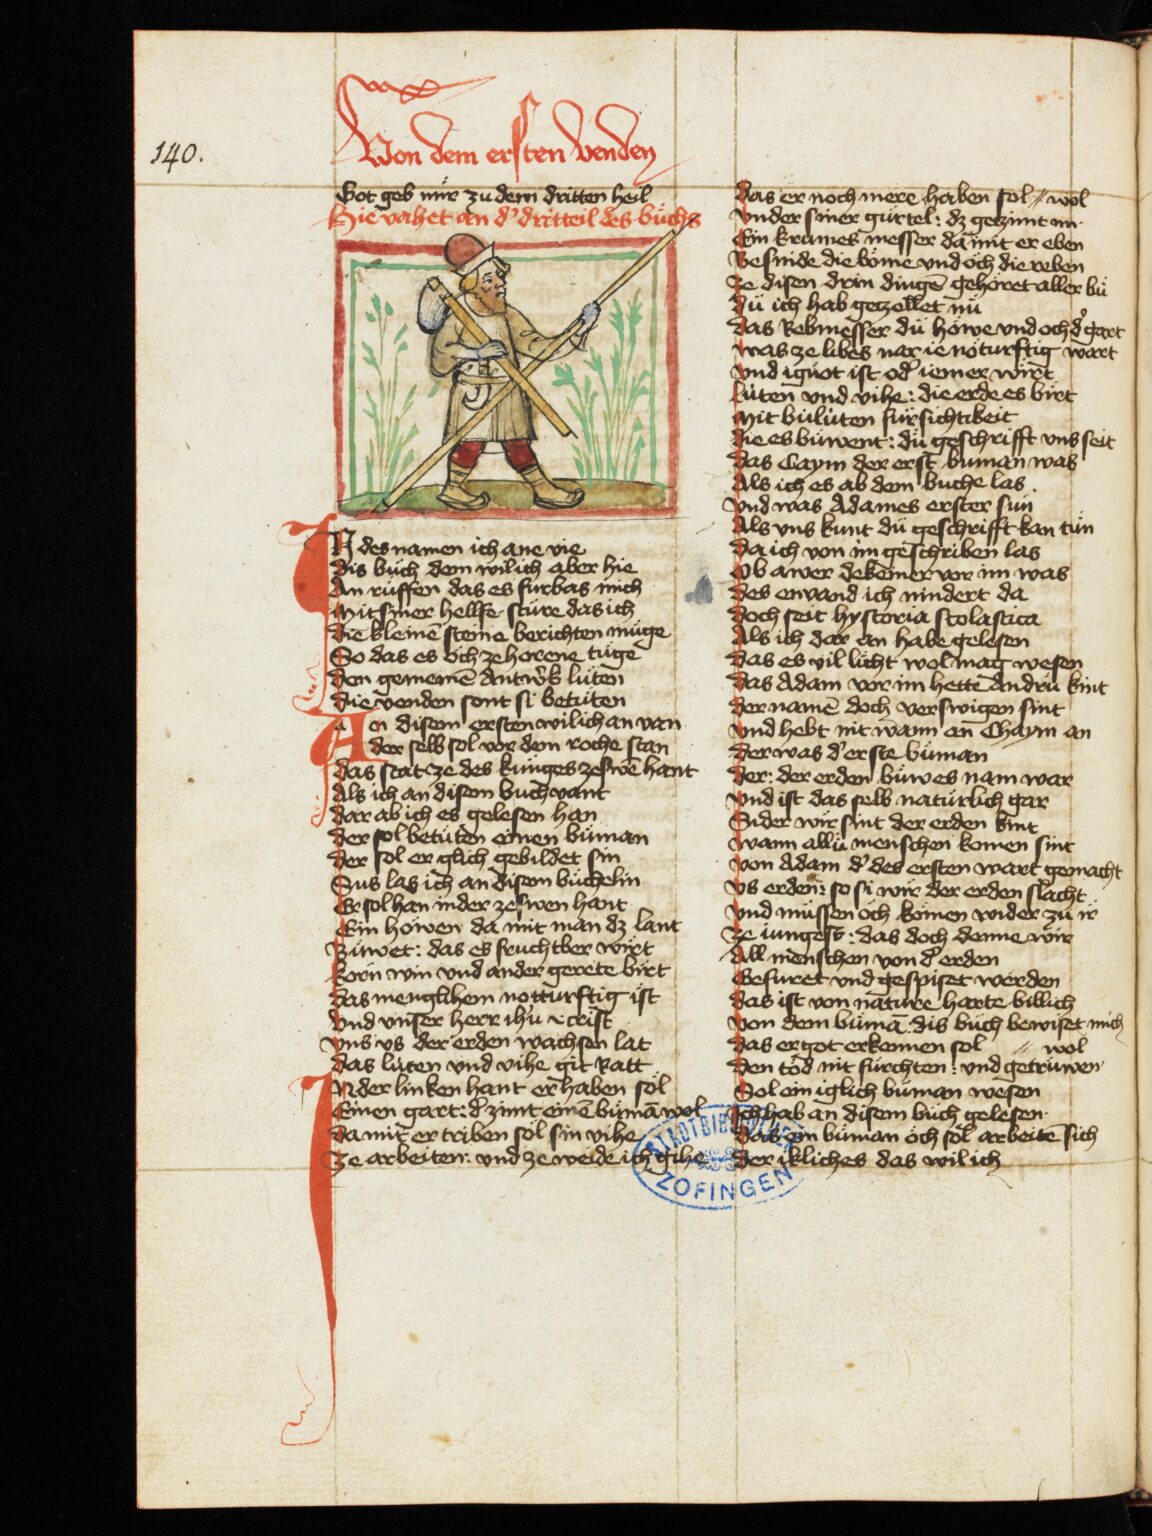 140.
Von dem ersten venden
Got geb mir zu dem dritten heil
Hie vahet an d' dritteil des buchs
IN des namen ich ane vie
dis buch dem wil ich aber hie
An ruffen das es furbas mich
Mit siner hellfe sture das ich
die kleinē steine berichten muge
So das es och ze horene tuge
den gemeinē Antw'k luten
die venden sont si betuten
An disem ersten wil ich an van
der selb sol vor dem roche stan
das stat ze des kunges zeswē hant
Als ich an disem buch vant
dar ab ich es gelesen han
der sol betuten einen buman
der sol er glich gebildet sin
Sus las ich an disem buchelin
Er sol han in der zeswen hant
Ein howen da mit man dz lant
Buwet: das es fruchtber wirt
korn win und ander gerete birt
das menglihem notturftig ist
Und unser herr ihu xcrist
uns us der erden wachsen lat
das luten und vihe git Ratt
IN der linken hant er haben sol
Einen gart: d' zimt einē bumā wol
da mit er triben sol sin vihe
Ze arbeiten: und ze weide ich gihe
das er noch mere haben sol // wol
under siner gurtel: dz gezimt im
Ein krumes messer da mit er eben
Besnide die bome und och die reben
ze disen drin dingē gehoret aller bu
du ich hab gezellet nu
das Rebmesser du howe und och d' gart
was ze libes nar ie noturftig wart
und iguot ist od' iemer wirt
luten und vihe: die erde es birt
Mit buluten fursichtikeit
die es buwent: du geschrifft uns seit
das Caym der erst buman was
Als ich es ab dem buche las.
und was Adames erster sun
Als uns kunt du geschrifft kan tun
da ich von im geschriben las
Ob awer dekeiner vor im was
des envand ich nindert da
doch seit hystoria scolastica
Als ich dar an habe gelesen
das es vil licht wol mag wesen
das Adam vor im hette Andru kint
der namē doch verswigen sint
und hebt nit wann an Chaym an
der was d' erste buman
der: der erden buwes nam war
und ist das selb naturlich gar
Sider wir sint der erden kint
wann allu menschen komen sint
von Adam d' des ersten wart gemacht
us erden: so si wir der erden slacht
und mussen och komen wider zu ir
ze iungest: das doch denne wir
All menschen von d' erden
Gefuret und gespiset werden
das ist von nature harte billich
von dem bumā. dis buch bewiset mich
das er got erkennen sol // wol
den tod nit furchten: und getruwen
Sol ein iglich buman wesen
Ich hab an disem buch gelesen.
das ein buman och sol arbeitē sich
der ikliches das wil ich
STADTBIBLIOTHEK
ZOFINGEN